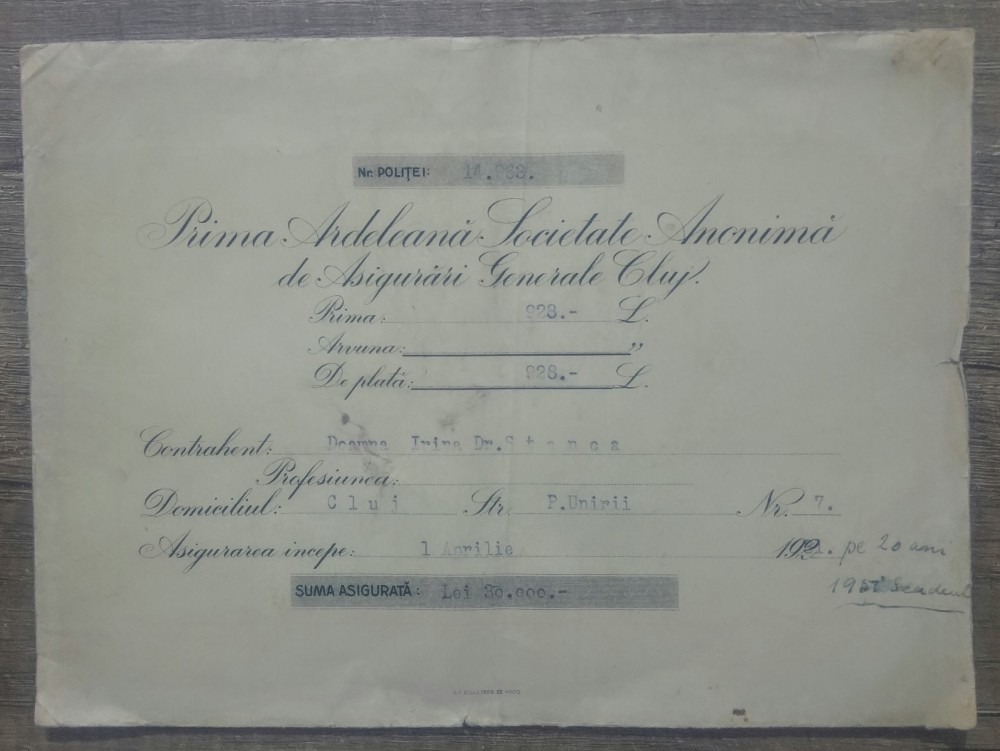 Nr. POLIȚEI: 14.983.
Prima Ardeleană Societate Anonimă
de Asigurări Generale Cluj.
Prima: 928.- L.
Arvuna: „
De plată: 928.- L.
Contrahent: Doamna Irina Dr. Stanca
Profesiunea:
Domiciliul: Cluj Str. P.Unirii Nr. 7.
Asigurarea începe: 1 Aprilie 1931. pe 20 ani
SUMA ASIGURATĂ: Lei 30.000.-
1951 Scadent